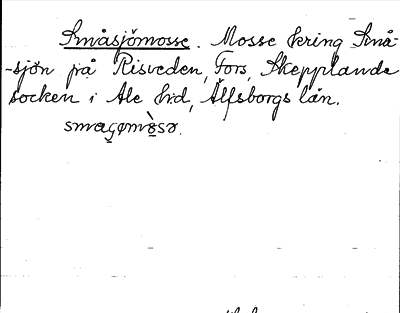 Småsjömosse. Mosse kring Små-
-sjön på Risveden, Fors, Skepplanda
socken i Ale hrd, Älfsborgs län.